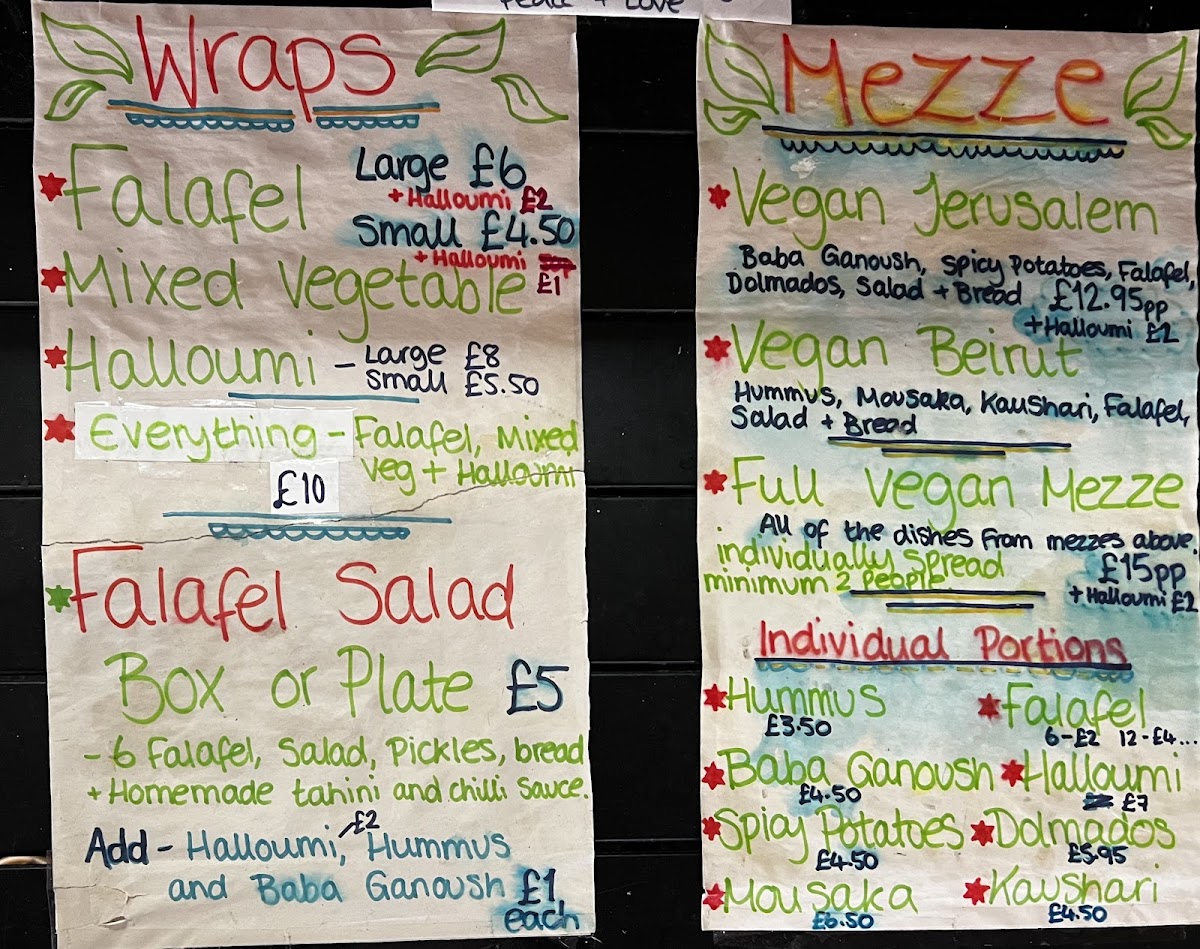 Peace + Love
Wraps
Falafel
Large £6
+ Halloumi £2
Small £4.50
+ Halloumi
£1
Mixed Vegetable
Halloumi - Large £8
Small £5.50
Everything - Falafel, Mixed
Veg + Halloumi
£10
Falafel Salad
Box or Plate £5
- 6 Falafel, Salad, Pickles, bread
+ Homemade tahini and chilli sauce.
£2
Add - Halloumi, Hummus
and Baba Ganoush £1
each
Mezze
Vegan Jerusalem
Baba Ganoush, Spicy Potatoes, Falafel,
Dolmados, Salad + Bread £12.95pp
+ Halloumi £2
Vegan Beirut
Hummus, Mousaka, Kaushari, Falafel,
Salad + Bread
Full Vegan Mezze
All of the dishes from mezzes above.
individually spread
minimum 2 people
£15pp
+ Halloumi £2
Individual Portions
Hummus
£3.50
Falafel
6-£2 12-£4...
Baba Ganoush
£4.50
Halloumi
£7
Spicy Potatoes
£4.50
Dolmados
£5.95
Mousaka
£6.50
Kaushari
£4.50